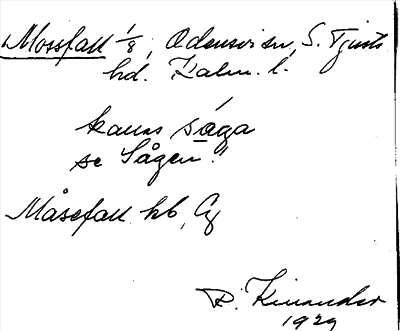 Mossfall 1/8, Odensvi sn, S. Tjusts
hd. Kalm. l.
kallas såga
se Sågen."
Måsefall hb, Cg
R. Kinander
1929